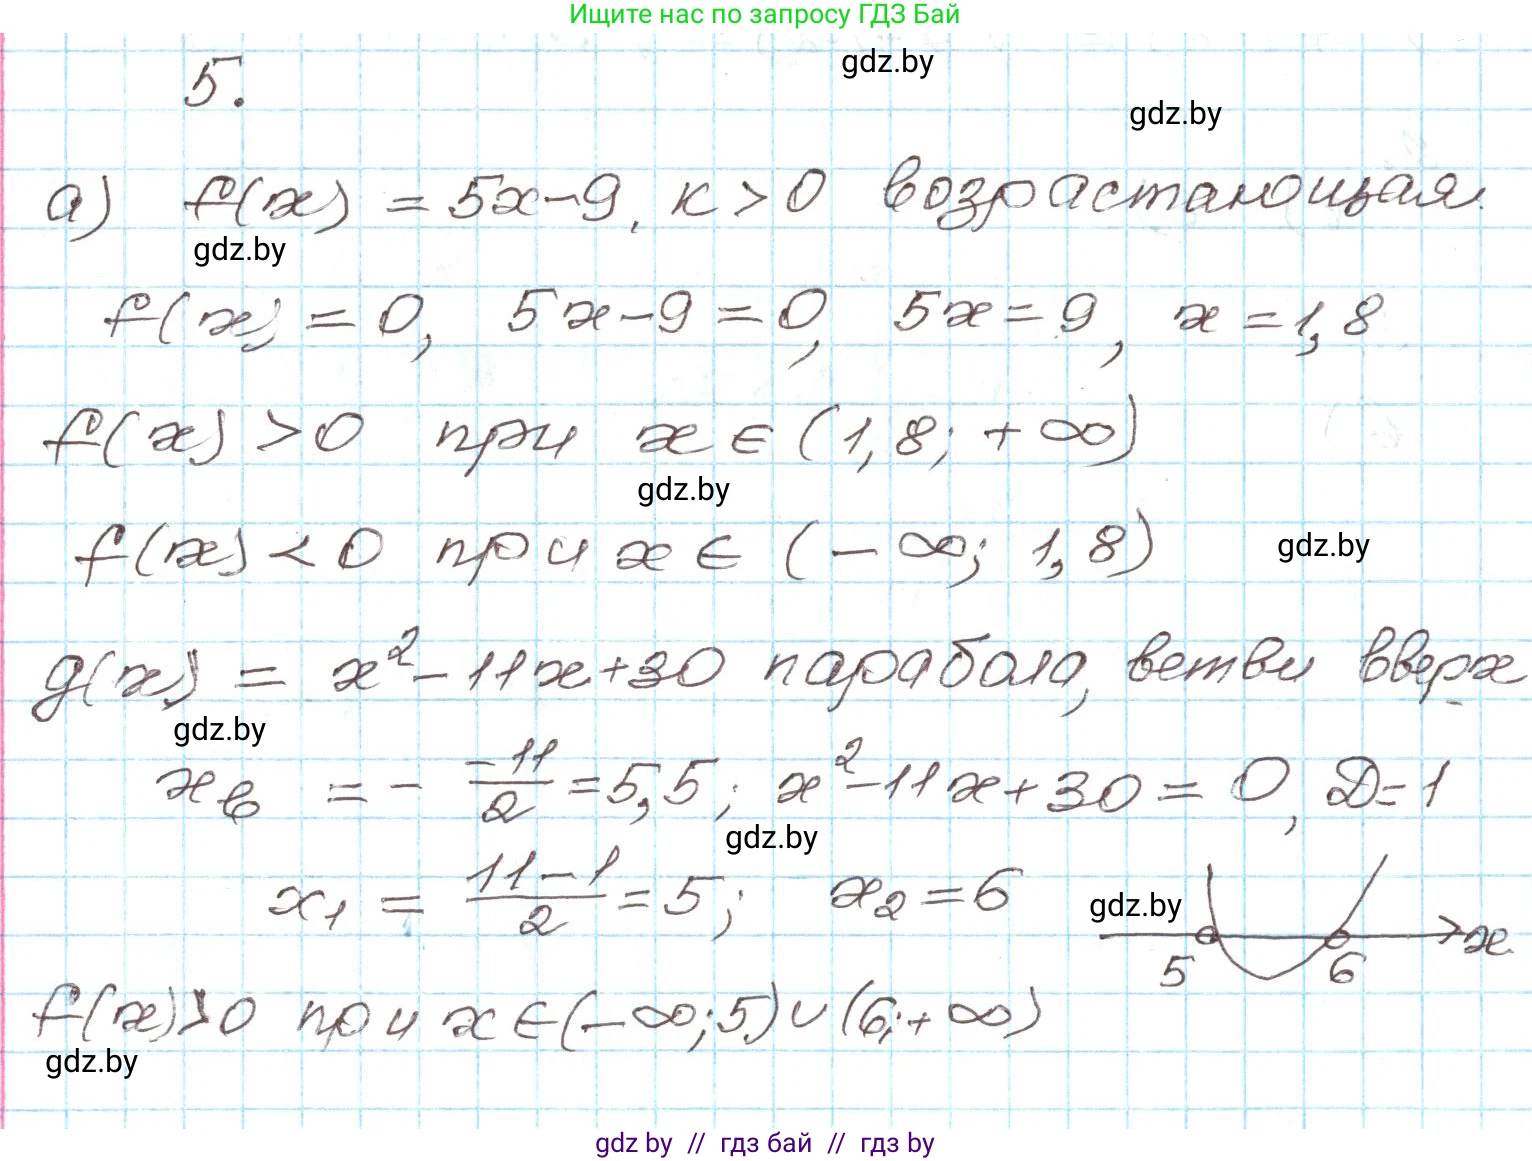 Ищите нас по запросу ГДЗ Бай
5.
gdz.by
gdz.by
а) f(x) = 5x-9, к>0 возрастающая.
gdz.by
f(x) = 0, 5x-9=0, 5x=9, x=1,8
f(x) >0 при x∈(1,8; +∞)
gdz.by
f(x) <0 при x∈ (-∞; 1,8)
gdz.by
g(x) = x²-11x+30 парабола, ветви вверх
gdz.by
xв = - -11/2 =5,5; x²-11x+30=0, D=1
gdz.by
x₁ = 11-1/2 =5; x₂=6
gdz.by
x
5 6
f(x)>0 при x∈(-∞;5)∪(6;+∞)
gdz.by
gdz.by // гдз бай // гдз by